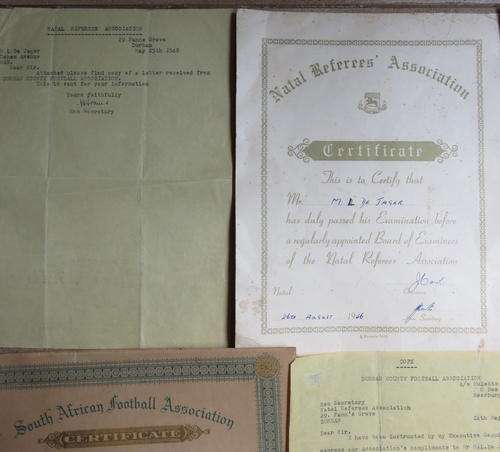 NATAL REFEREES ASSOCIATION
29 Fenns Grove
Durban
May 25th 1948
L De Jager
Avenue
Dear Sir.
Attached please find copy of a letter received from
DURBAN COUNTY FOOTBALL ASSOCIATION.
This is sent for your information
Yours faithfully
Hon Secretary
Natal Referees' Association
Certificate
This is to Certify that
Mr. M. L De JAGER
has duly passed his Examination before
a regularly appointed Board of Examiners
of the Natal Referees' Association
Natal
26th AUGUST 1946
South African Football Association
CERTIFICATE
COPY
DURBAN COUNTY FOOTBALL ASSOCIATION
Hon Secretary
Natal Referees Association
29. Fenn's Grove
DURBAN
Dear Sir,
I have been instructed by my Executive
express our Association's compliments to Mr